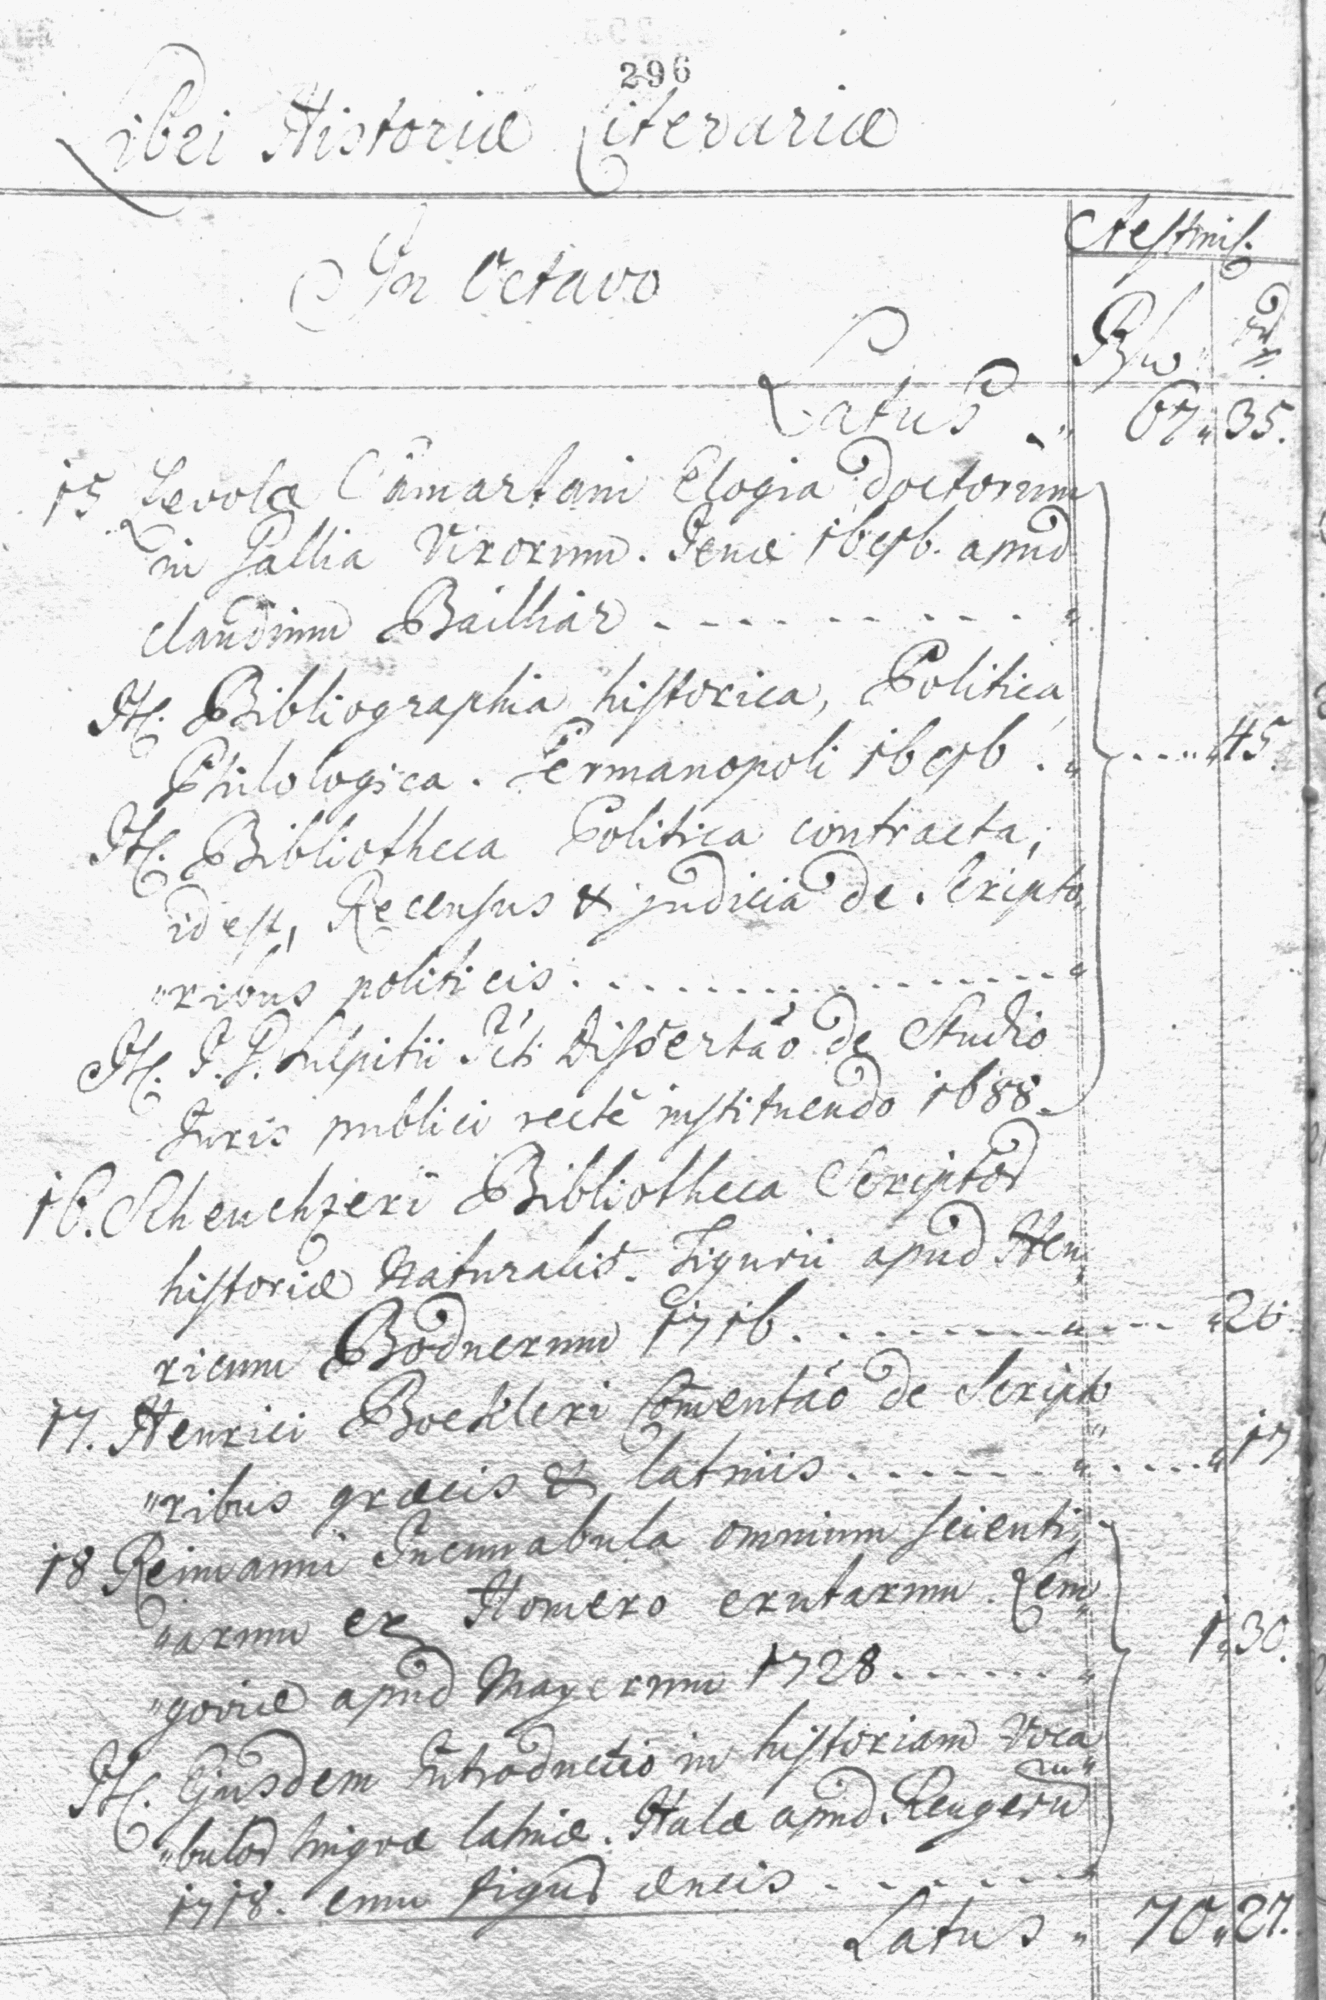 296
Libri Historiæ Literariæ
Æstimis.
In Octavo
Latus „ 67 „ 35.
15 Scevolæ Samartani Elogia doctorum
in Gallia Virorum. Jenæ 1696. apud
claudium Bailliar - - - - - - - „
It. Bibliographia historica, Politica,
Philologica. Germanopoli 1696 . „ - - - „ 45.
It. Bibliotheca Politica contracta,
id est, Recensus & judicia de Scripto„
„ribus politicis. - - - - - - - - - „
It. J. G. Kulpitii Jcti Dissertão de Studio
Juris publici rectè instituendo 1688.
16. Scheuchzeri Bibliotheca Scriptor
historiæ Naturalis. Tigurii apud Hen„
ricum Bodnerum 1716. - - - - - - „ - - - „ 26.
17. Henrici Boekleri Com̃então de Scripto
„ribus græcis & latinis - - - - - „ - - - - „ 17
18 Reimanni Incunabula omnium scienti„
„arum ex Homero erutarum. Lem„
„goviæ apud Mayerum 1728 - - - - - „ 1 „ 30.
It. Ejusdem Introductio in historiam Voca„
„bulor linguæ latinæ. Halæ apud Rengeru̅
1718. cum figur æneis - - - - - - „
Latus „ 70 „ 27.